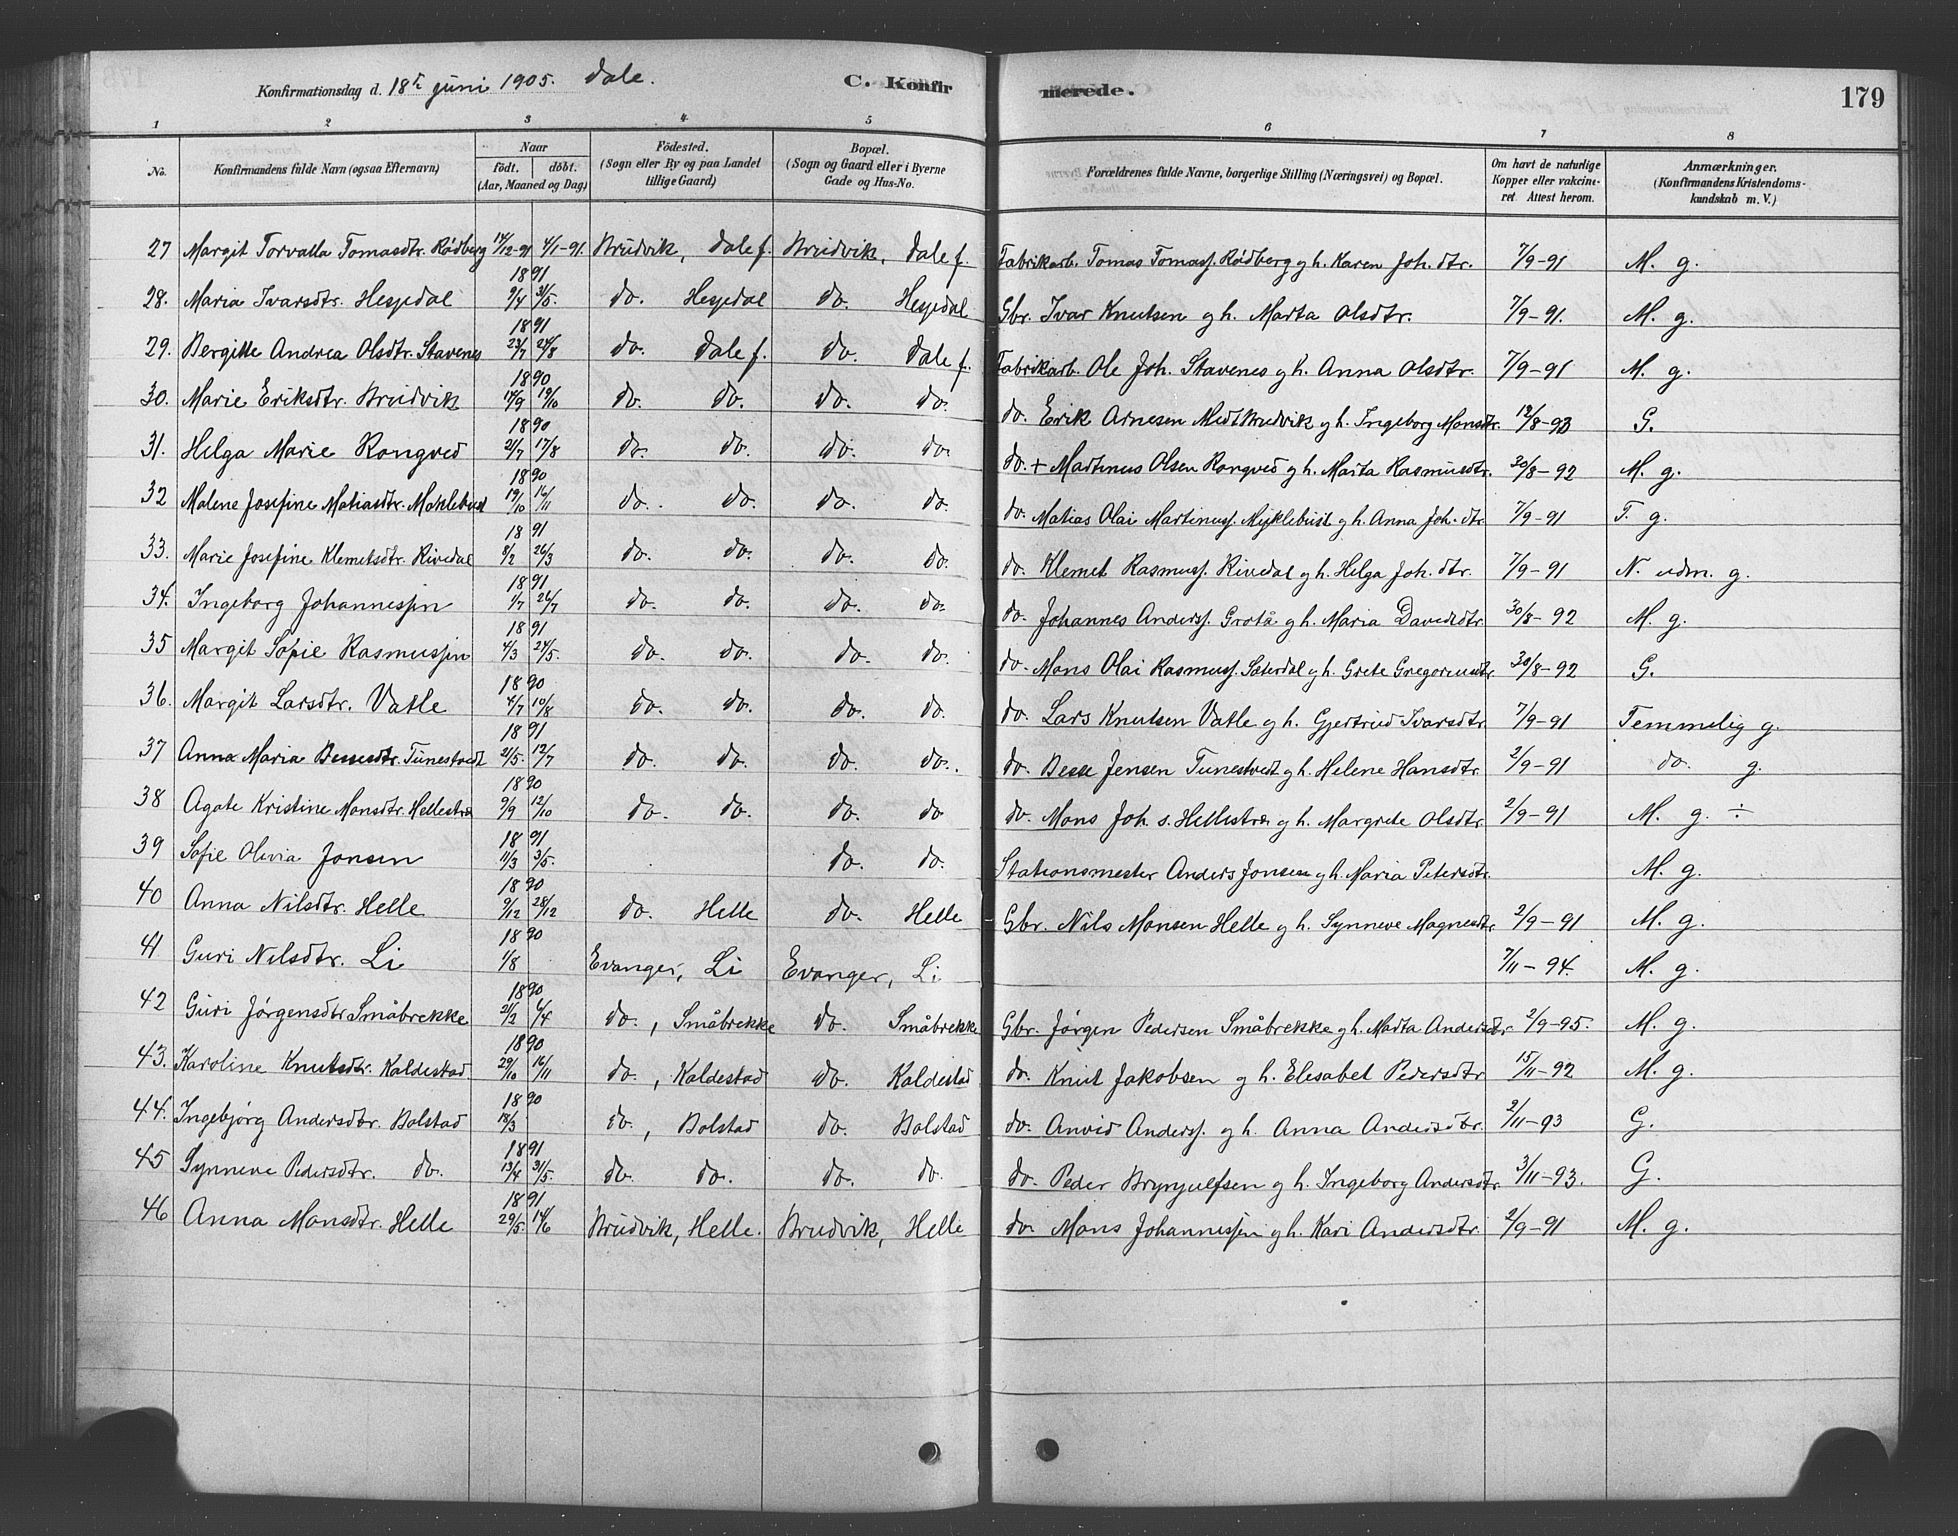 Konfirmationsdag d. 18de juni 1905. Dale. C. Konfirmerede. 179
1 2 3 4 5 6 7 8
No. Konfirmandens fulde Navn (ogsaa Efternavn) Naar födt. döbt. (Aar, Maaned og Dag) Födested. (Sogn eller By og paa Landet tillige Gaard) Bopæl. (Sogn og Gaard eller i Byerne Gade og Hus-No. Forældrenes fulde Navne, borgerlige Stilling (Næringsvei) og Bopæl. Om havt de naturlige Kopper eller vakcineret Attest herom. Anmærkninger. (Konfirmandens Kristendomskundskab m. V.)
27 Margit Torvalla Tomasdtr. Rødberg 4/1-91. Bruvik, Dale f. Bruvik, Dale f. Fabrikarb. Tomas Tomass. Rødberg og h. Karen Joh. dtr. 7/9-91 M. g.
28. Maria Ivarsdtr. Hesjedal 1891 9/4 31/5. do. Hesjedal do. Hesjedal Gbr. Ivar Knutsen og h. Marta Olsdtr. 7/9-91. M. g.
29. Bergitte Andrea Olsdtr. Stavenes 1891 23/7 24/8 do. Dale f. do. Dale f. Fabrikarb. Ole Joh. Stavenes og h. Anna Olsdtr. 7/9-91 M. g.
30. Marie Eriksdtr. Bruvik 1890 14/9 19/10 do. do. do. do. do. Erik Arnesen Medt Bruvik og h. Ingeborg Monsdtr. 12/8-93 G.
31. Helga Marie Rongved 1890 21/7 17/8 do. do. do. do do. + Martinus Olsen Rongved og h. Marta Rasmusdtr. 30/8-92 M. g.
32 Malene Josefine Matiasdtr. Møklebust 1890 19/10 16/11 do. do. do. do. do. Matias Olai Martinuss. Myklebust og h. Anna Joh. dtr. 7/9-91 T. g.
33. Marie Josefine Klemetsdtr. Rivedal 1891 8/2 26/3 do. do. do. do. do. Klemet Rasmuss. Rivedal og h. Helga Joh. dtr. 7/9-91 N. udm. g.
34. Ingeborg Johannessen 1891 1/7 26/7 do. do. do. do. do. Johannes Anderss. Grotå og h. Maria Davidsdtr. 30/8-92 M. g.
35 Margit Sofie Rasmussen 1891 4/3 24/5. do. do. do. do. do. Mons Olai Rasmuss. Sæterdal og h. Grete Gregoriusdtr. 30/8-92 G.
36. Margit Larsdtr. Vatle 1890 4/7 10/8 do. do. do. do. do. Lars Knutsen Vatle og h. Gjertrud Ivarsdtr. 7/9-91 Temmelig g.
37 Anna Maria Bessesdtr. Tunestvedt 1891 21/5. 12/7 do. do. do. do. do. Besse Jensen Tunestvedt og h. Helene Hansdtr. 2/9-91 do. g.
38 Agate Kristine Monsdtr. Hellestræ 1890 9/9 12/10 do. do. do. do do. Mons Joh. s. Hellestræ og h. Margrete Olsdtr. 2/9-91 M. g. ÷
39 Sofie Olivia Jonsen 1891 11/3 3/5. do. do. Stationsmester Anders Jonsen og h. Maria Petersdtr. M. g.
40 Anna Nilsdtr. Helle 1890 9/12 28/12 do. Helle do. Helle Gbr. Nils Monsen Helle og h. Synneve Magnesdtr. 2/9-91 M. g.
41 Guri Nilsdtr. Li 1890 1/8 Evanger, Li Evanger, Li 7/11-94. M. g.
42 Guri Jørgensdtr. Småbrekke 1890 21/2 6/4 do., Småbrekke do. Småbrekke Gbr. Jørgen Pedersen Småbrekke og h. Marta Andersdtr. 2/9-95. M. g.
43. Karoline Knutsdtr. Kaldestad. 1890 29/10 16/11 do., Kaldestad do. Kaldestad do. Knut Jakobsen og h. Elesabet Pedersdtr 15/11-92 M. g.
44. Ingebjørg Andersdtr. Bolstad 1890 18/3 do., Bolstad do. Bolstad do. Anvid Anderss. og h. Anna Andersdtr. 2/11-93 G.
45 Synneve Pedersdtr. do. 1891 13/4 31/5. do do. do. do do. Peder Brynjulfsen og h. Ingeborg Andersdtr. 3/11-93. G.
46 Anna Monsdtr. Helle 1891 29/5. 14/6 Bruvik, Helle. Bruvik, Helle do. Mons Johannessen og h. Kari Andersdtr. 2/9-91 M. g.